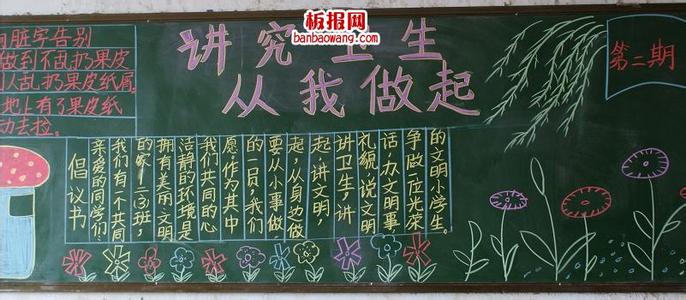 板报网
banbaowang.com
脏字告别
做到不乱扔果皮
人乱扔果皮纸屑
地上有了果皮纸
动去捡。
讲究卫生
从我做起
第二期
倡议书
亲爱的同学们:
我们有一个共同
的家—二(3)班,
拥有美丽、文明
洁静的环境是
我们共同的心
愿。作为其中
的一员,我们
要从小事做
起,从身边做
起,讲文明,
讲卫生,讲
礼貌,说文明
话,办文明事
争做一位光荣
的文明小学生。